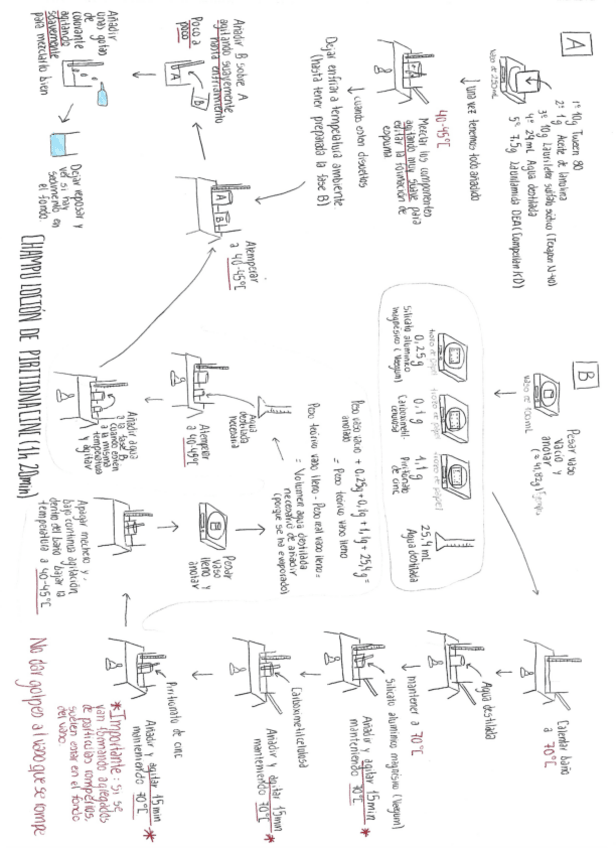 CHAMPU LOCIÓN DE PIRITIONACINC (1h 20min)
A
vaso de 250mL
1º 10g Tween 80
2º 1g Aceite de lanolina
3º 10g Lauril eter sulfato sódico (Texapon N-40)
4º 24mL Agua destilada
5º 7,5g Laurilamida DEA (Comperlan KD)
una vez tenemos todo añadido
40-45ºC
Mezclar los componentes
agitando muy suave para
evitar la formación de
espuma
cuando esten disueltos
Dejar enfriar a temperatura ambiente
(hasta tener preparada la fase B)
B
vaso de 100mL
Pesar vaso
vacío y
anotar
trozo de papel
0,25g
Silicato alumínico
magnésico (Veegum)
trozo de papel
0,1g
Carboximetil
celulosa
trozo de papel
1,1g
Piritionato
de cinc
25,4mL
Agua destilada
Calentar baño
a 70ºC
Agua destilada
mantener a 70ºC
Silicato aluminico magnésico (Veegum)
Añadir y agitar 15min
manteniendo 70ºC *
Carboximetilcelulosa
Añadir y agitar 15min
manteniendo 70ºC *
Piritionato de cinc
Añadir y agitar 15min
manteniendo 70ºC *
*Importante: si se
van formando agregados
de partículas romperlos,
suelen estar en el fondo
del vaso.
No dar golpes al vaso que se rompe
Apagar mechero y,
bajo continua agitación
dentro del baño dejar la
temperatura a 40-45ºC
Pesar
vaso
lleno y
anotar
Peso vaso vacío + 0,25g+0,1g+1,1g+25,4g =
anotado
= Peso teórico vaso lleno
Peso teórico vaso lleno - Peso real vaso lleno=
= Volumen agua destilada
necesario de añadir
(porque se ha evaporado)
Agua
destilada
necesaria
Atemperar
a 40-45ºC
Añadir agua
a la fase B
cuando esten
a la misma
temperatura
y agitar
A
B
Atemperar
a 40-45ºC
A
B
Añadir B sobre A
agitando suavemente
hasta enfriamiento
Poco a
poco
Añadir
unas gotas
de
colorante
agitando
suavemente
para mezclarlo bien
Dejar reposar y
ver si hay
sedimento en
el fondo